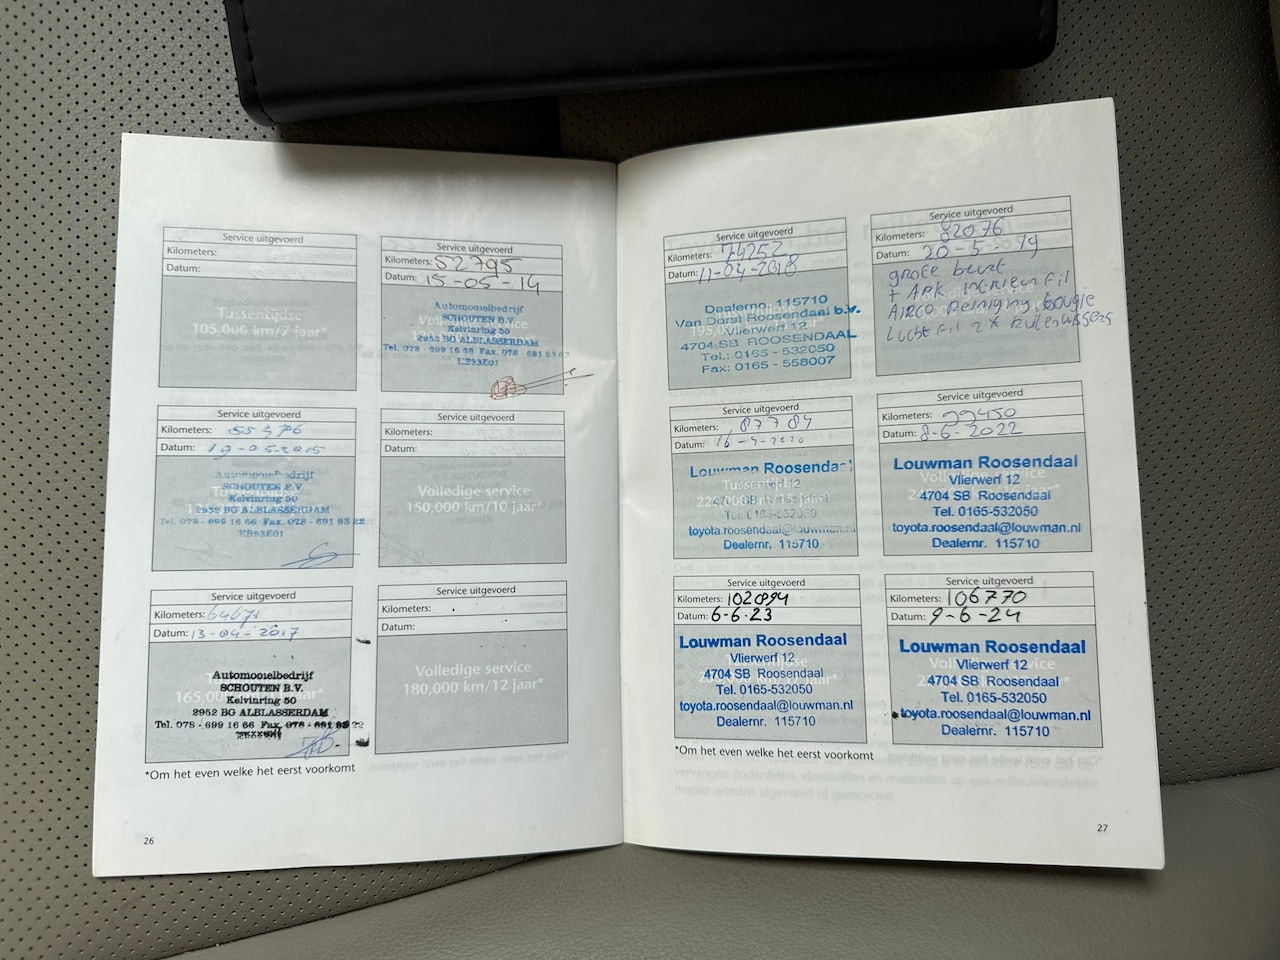 Service uitgevoerd
Kilometers:
Datum:
Tussentijdse
105,000 km/7 jaar*
Service uitgevoerd
Kilometers: 52795
Datum: 15-05-14
Automobielbedrijf
SCHOUTEN B.V.
Kelvinring 50
2952 BG ALBLASSERDAM
Tel. 078 - 699 16 66 Fax. 078 - 691 93 22
Service uitgevoerd
Kilometers: 55376
Datum: 19-05-2015
Automobielbedrijf
SCHOUTEN B.V.
Kelvinring 50
2952 BG ALBLASSERDAM
Tel. 078 - 699 16 66 Fax. 078 - 691 93 22
Service uitgevoerd
Kilometers:
Datum:
Volledige service
150,000 km/10 jaar*
Service uitgevoerd
Kilometers:
Datum: 13-04-2017
Automobielbedrijf
SCHOUTEN B.V.
Kelvinring 50
2952 BG ALBLASSERDAM
Tel. 078 - 699 16 66 Fax. 078 - 691 93 22
Service uitgevoerd
Kilometers:
Datum:
Volledige service
180,000 km/12 jaar*
*Om het even welke het eerst voorkomt
26
Service uitgevoerd
Kilometers: 74252
Datum: 11-04-2018
Dealerno. 115710
Van Dorst Roosendaal b.v.
Vlierwerf 12
4704 SB ROOSENDAAL
Tel.: 0165 - 532050
Fax: 0165 - 558007
Service uitgevoerd
Kilometers: 82076
Datum: 20-5-2019
grote beurt
+ APK interieur fil
Airco reiniging, bougie
Luchtfil 2x
Service uitgevoerd
Kilometers: 87784
Datum: 16-4-2020
Louwman Roosendaal
4704 SB Roosendaal
Tel. 0165-532050
toyota.roosendaal@louwman.nl
Dealernr. 115710
Service uitgevoerd
Kilometers: 99450
Datum: 8-6-2022
Louwman Roosendaal
Vlierwerf 12
4704 SB Roosendaal
Tel. 0165-532050
toyota.roosendaal@louwman.nl
Dealernr. 115710
Service uitgevoerd
Kilometers: 102894
Datum: 6-6-23
Louwman Roosendaal
Vlierwerf 12
4704 SB Roosendaal
Tel. 0165-532050
toyota.roosendaal@louwman.nl
Dealernr. 115710
Service uitgevoerd
Kilometers: 106770
Datum: 9-6-24
Louwman Roosendaal
Vlierwerf 12
4704 SB Roosendaal
Tel. 0165-532050
toyota.roosendaal@louwman.nl
Dealernr. 115710
*Om het even welke het eerst voorkomt
27